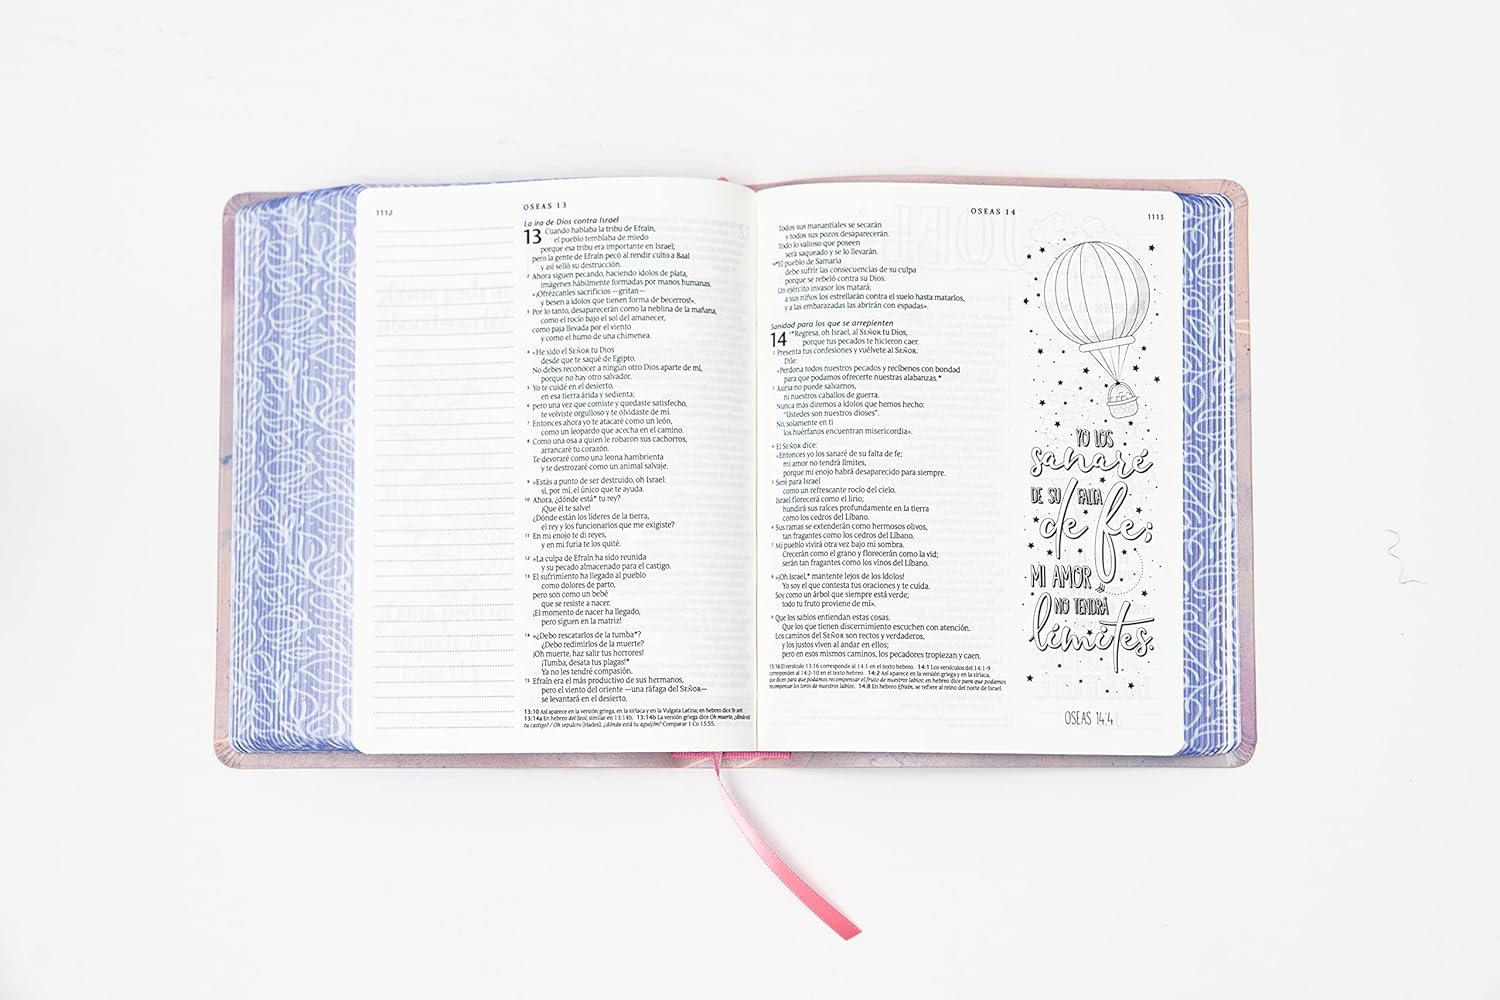 1112
OSEAS 13
La ira de Dios contra Israel
13 Cuando hablaba la tribu de Efraín,
el pueblo temblaba de miedo
porque esa tribu era importante en Israel;
pero la gente de Efraín pecó al rendir culto a Baal
y así selló su destrucción.
2 Ahora siguen pecando, haciendo ídolos de plata,
imágenes hábilmente formadas por manos humanas.
«¡Ofrézcanles sacrificios —gritan—
y besen a ídolos que tienen forma de becerros!».
3 Por lo tanto, desaparecerán como la neblina de la mañana,
como el rocío bajo el sol del amanecer,
como paja llevada por el viento
y como el humo de una chimenea.
4 «He sido el SEÑOR tu Dios
desde que te saqué de Egipto.
No debes reconocer a ningún otro Dios aparte de mí,
porque no hay otro salvador.
5 Yo te cuidé en el desierto,
en esa tierra árida y sedienta;
6 pero una vez que comiste y quedaste satisfecho,
te volviste orgulloso y te olvidaste de mí.
7 Entonces ahora yo te atacaré como un león,
como un leopardo que acecha en el camino.
8 Como una osa a quien le robaron sus cachorros,
arrancaré tu corazón.
Te devoraré como una leona hambrienta
y te destrozaré como un animal salvaje.
9 »Estás a punto de ser destruido, oh Israel:
sí, por mí, el único que te ayuda.
10 Ahora, ¿dónde está* tu rey?
¡Que él te salve!
¿Dónde están los líderes de la tierra,
el rey y los funcionarios que me exigiste?
11 En mi enojo te di reyes,
y en mi furia te los quité.
12 »La culpa de Efraín ha sido reunida
y su pecado almacenado para el castigo.
13 El sufrimiento ha llegado al pueblo
como dolores de parto,
pero son como un bebé
que se resiste a nacer.
¡El momento de nacer ha llegado,
pero siguen en la matriz!
14 »¿Debo rescatarlos de la tumba*?
¿Debo redimirlos de la muerte?
¡Oh muerte, haz salir tus horrores!
¡Tumba, desata tus plagas!*
Ya no les tendré compasión.
15 Efraín era el más productivo de sus hermanos,
pero el viento del oriente —una ráfaga del SEÑOR—
se levantará en el desierto.
13:10 Así aparece en la versión griega, en la siríaca y en la Vulgata Latina; en hebreo dice Yo seré.
13:14a En hebreo del Seol; similar en 13:14b. 13:14b La versión griega dice Oh muerte, ¿dónde está
tu castigo? / Oh sepulcro [Hades], ¿dónde está tu aguijón? Comparar 1 Co 15:55.
OSEAS 14
1113
Todos sus manantiales se secarán
y todos sus pozos desaparecerán.
Todo lo valioso que poseen
será saqueado y se lo llevarán.
16 *El pueblo de Samaria
debe sufrir las consecuencias de su culpa
porque se rebeló contra su Dios.
Un ejército invasor los matará;
a sus niños los estrellarán contra el suelo hasta matarlos,
y a las embarazadas las abrirán con espadas».
Sanidad para los que se arrepienten
14 1 *Regresa, oh Israel, al SEÑOR tu Dios,
porque tus pecados te hicieron caer.
2 Presenta tus confesiones y vuélvete al SEÑOR.
Dile:
«Perdona todos nuestros pecados y recíbenos con bondad
para que podamos ofrecerte nuestras alabanzas.*
3 Asiria no puede salvarnos,
ni nuestros caballos de guerra.
Nunca más diremos a ídolos que hemos hecho:
“Ustedes son nuestros dioses”.
No, solamente en ti
los huérfanos encuentran misericordia».
4 El SEÑOR dice:
«Entonces yo los sanaré de su falta de fe;
mi amor no tendrá límites,
porque mi enojo habrá desaparecido para siempre.
5 Seré para Israel
como un refrescante rocío del cielo.
Israel florecerá como el lirio;
hundirá sus raíces profundamente en la tierra
como los cedros del Líbano.
6 Sus ramas se extenderán como hermosos olivos,
tan fragantes como los cedros del Líbano.
7 Mi pueblo vivirá otra vez bajo mi sombra.
Crecerán como el grano y florecerán como la vid;
serán tan fragantes como los vinos del Líbano.
8 »¡Oh Israel,* mantente lejos de los ídolos!
Yo soy el que contesta tus oraciones y te cuida.
Soy como un árbol que siempre está verde;
todo tu fruto proviene de mí».
9 Que los sabios entiendan estas cosas.
Que los que tienen discernimiento escuchen con atención.
Los caminos del SEÑOR son rectos y verdaderos,
y los justos viven al andar en ellos;
pero en esos mismos caminos, los pecadores tropiezan y caen.
13:16 El versículo 13:16 corresponde al 14:1 en el texto hebreo. 14:1 Los versículos del 14:1-9
corresponden al 14:2-10 en el texto hebreo. 14:2 Así aparece en la versión griega y en la siríaca,
que dicen para que podamos recompensar el fruto de nuestros labios; en hebreo dice para que podamos
recompensar los toros de nuestros labios. 14:8 En hebreo Efraín, se refiere al reino del norte de Israel.
YO LOS
sanaré
DE SU FALTA
de fe;
MI AMOR
NO TENDRÁ
límites.
OSEAS 14:4